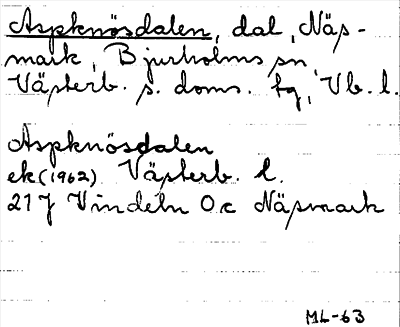 Aspknösdalen, dal, Näs-
mark, Bjurholms sn
Västerb. s. doms. tg, Vb. l.
Aspknösdalen
ek (1962) Västerb. l.
21 J Vindeln 0c Näsmark
ML-63